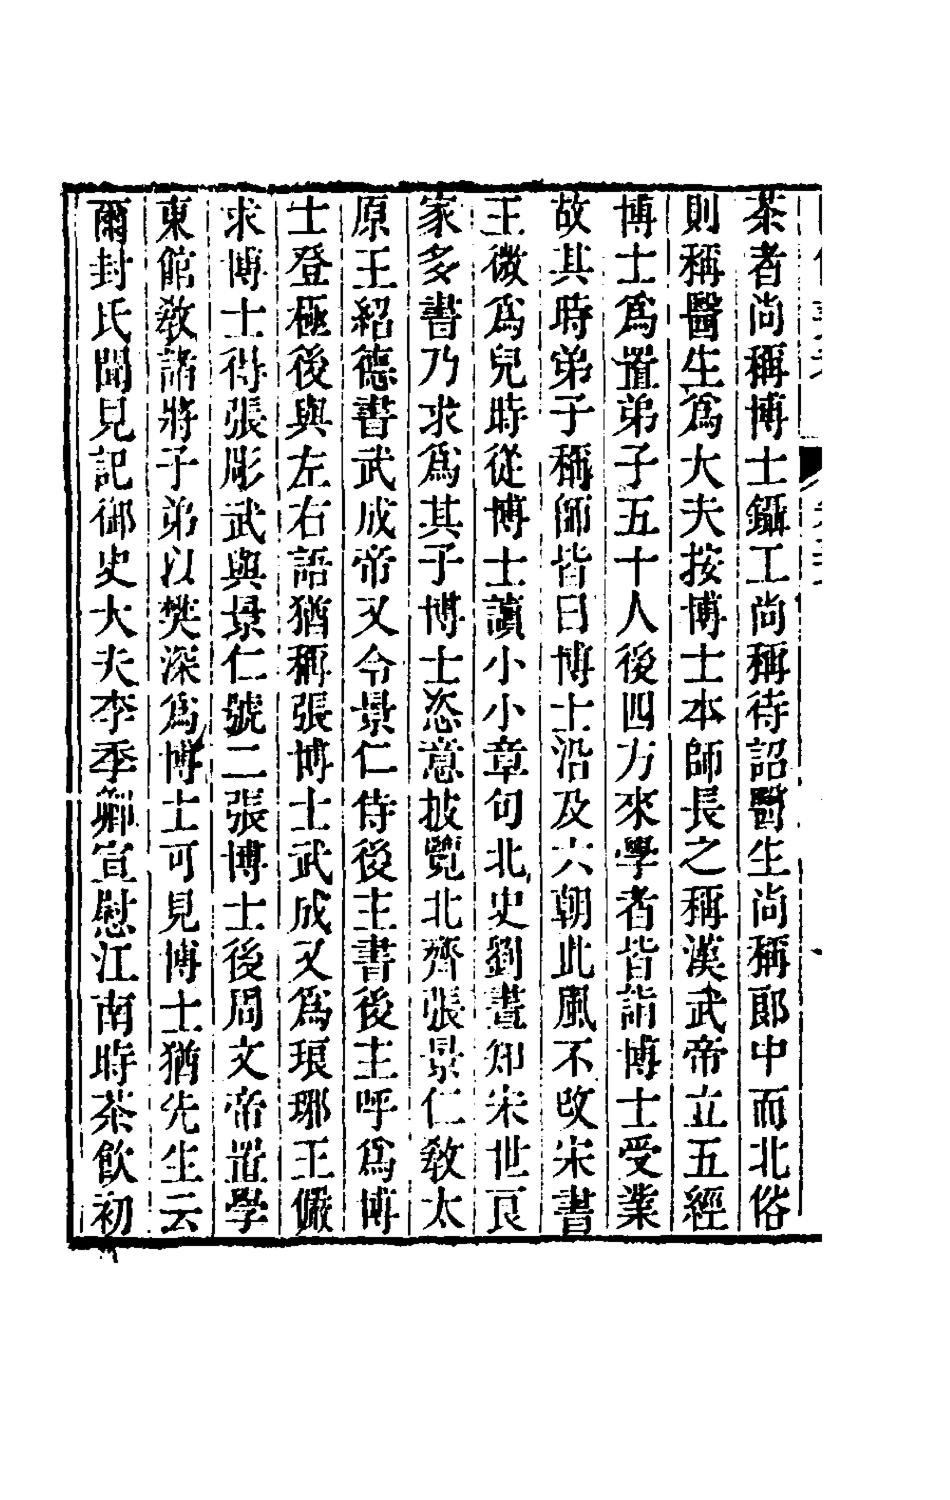 茶者尚稱博士鑷工尚稱待詔醫生尚稱郎中而北俗
則稱醫生爲大夫按博士本師長之稱漢武帝立五經
博士爲置弟子五十人後四方來學者皆詣博士受業
故其時弟子稱師皆曰博士沿及六朝此風不改宋書
王微爲兒時從博士讀小小章句北史劉晝知宋世良
家多書乃求爲其子博士恣意披覽北齊張景仁敎太
原王紹德書武成帝又令景仁侍後主書後主呼爲博
士登極後與左右語猶稱張博士武成又爲琅琊王儼
求博士得張彫武與景仁號二張博士後周文帝置學
東館敎諸將子弟以樊深爲博士可見博士猶先生云
爾封氏聞見記御史大夫李季卿宣慰江南時茶飲初